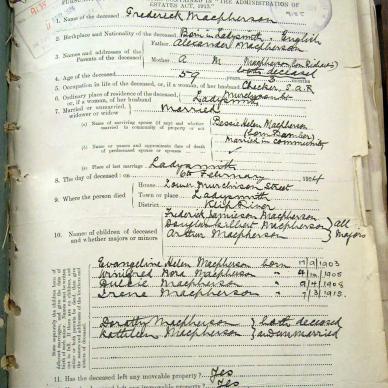 CONTAINED IN "THE ADMINISTRATION
ESTATES ACT, 1913."
1. Name of the deceased Frederick Macpherson
2. Birthplace and Nationality of the deceased Born in Ladysmith. English
3. Names and addresses of the Parents of the deceased
Father Alexander Macpherson
Mother A M Macpherson (born
both deceased
4. Age of the deceased 59 years months
5. Occupation in life of the deceased, or, if a woman, of her husband Checker, S.A.R.
6. Ordinary place of residence of the deceased, or, if a woman, of her husband Ladysmith
7. Married or unmarried, widower or widow Married
(a) Name of surviving spouse (if any) and whether married in community of property or not
Bessie Helen Macpherson
(born
married in community
(b) Name or names and approximate date of death of predeceased spouse or spouses
(c) Place of last marriage Ladysmith
8. The day of deceased's death 6th February 1924
9. Where the person died
House Lower Murchison Street
Town or place Ladysmith
District Klip River
10. Names of children of deceased and whether majors or minors
Frederick Jamieson Macpherson
Douglas Gilbert Macpherson
Arthur Macpherson
all majors
Evangeline Helen Macpherson born 1903
Winifred Nora Macpherson " 1905
Dulcie Macpherson " 1908
Irene Macpherson " 1912
Dorothy Macpherson
Kathleen Macpherson
both deceased
unmarried
11. Has the deceased left any movable property? Yes
Yes